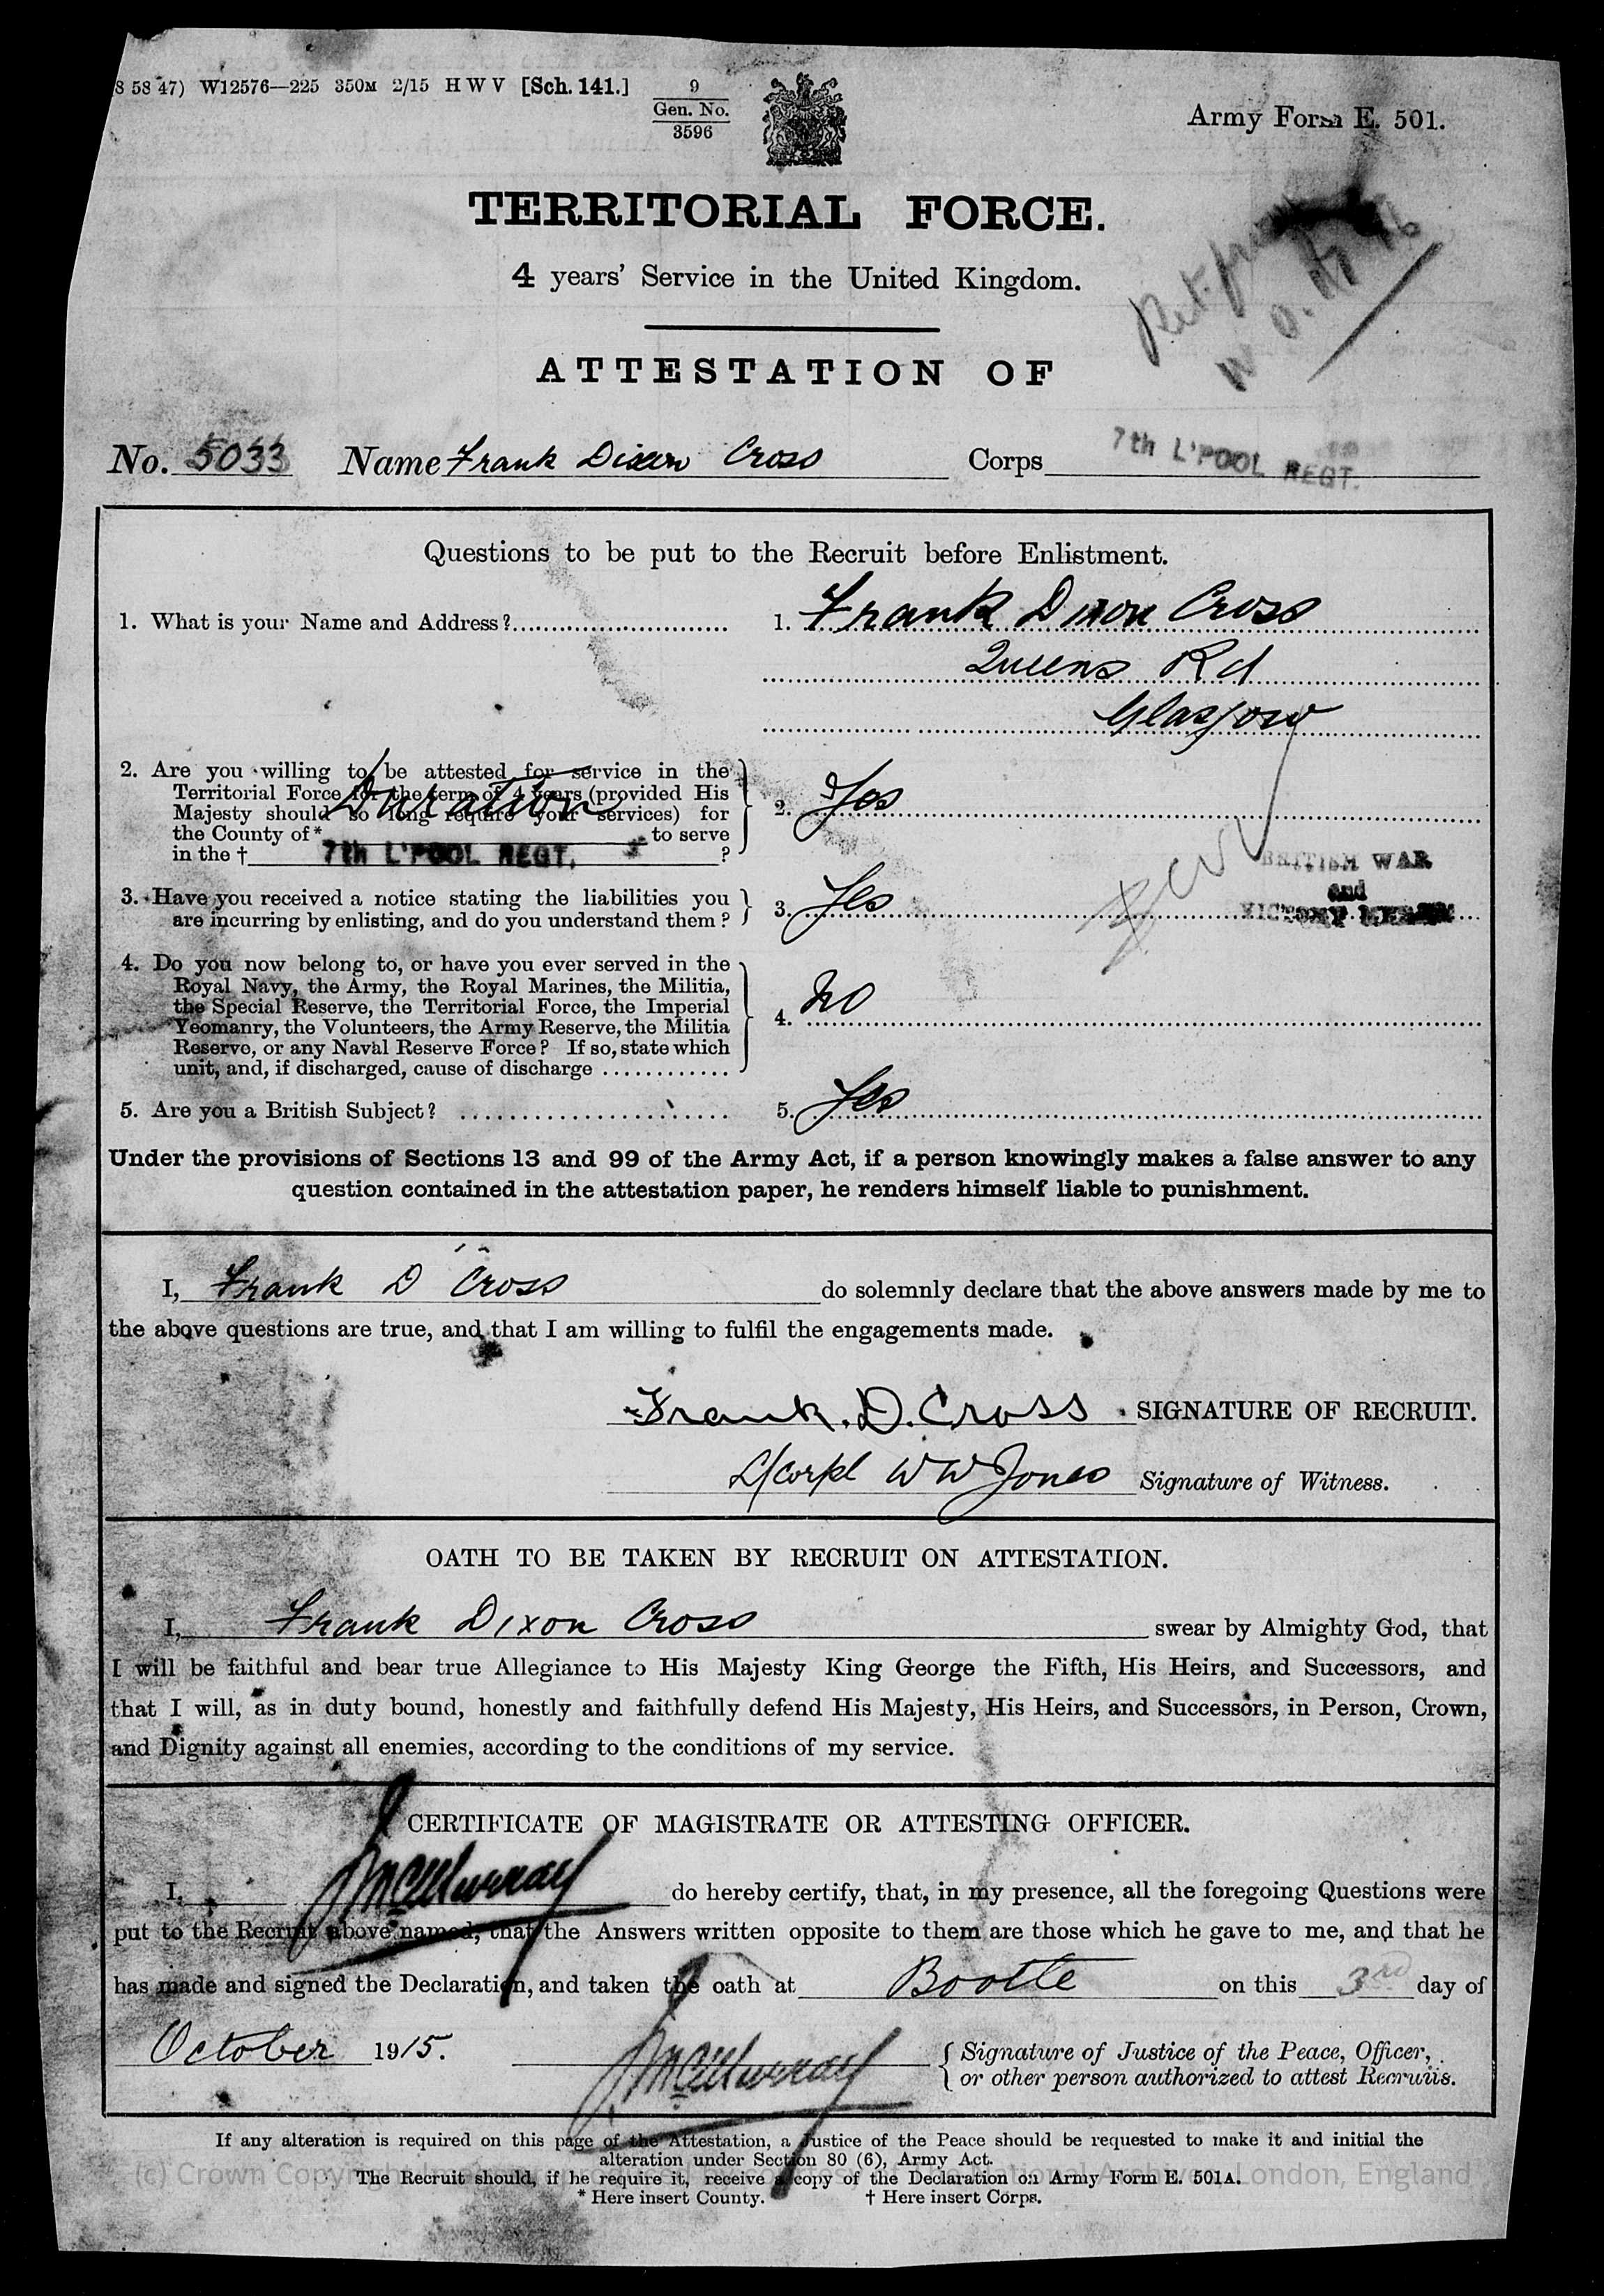 8 58 47) W12576—225 350M 2/15 H W V [Sch. 141.]
9
Gen. No.
3596
Army Form E. 501.
TERRITORIAL FORCE.
4 years' Service in the United Kingdom.
ATTESTATION OF
No. 5033 Name Frank Dixon Cross Corps 7th L'POOL REGT.
Questions to be put to the Recruit before Enlistment.
1. What is your Name and Address? 1. Frank Dixon Cross
Queens Rd
Glasgow
2. Are you willing to be attested for service in the
Territorial Force for the term of 4 years (provided His
Duration
Majesty should so long require your services) for
the County of * to serve
in the † 7th L'POOL REGT. ?
2. Yes
BRITISH WAR
and
VICTORY MEDALS
3. Have you received a notice stating the liabilities you
are incurring by enlisting, and do you understand them?
3. Yes
4. Do you now belong to, or have you ever served in the
Royal Navy, the Army, the Royal Marines, the Militia,
the Special Reserve, the Territorial Force, the Imperial
Yeomanry, the Volunteers, the Army Reserve, the Militia
Reserve, or any Naval Reserve Force? If so, state which
unit, and, if discharged, cause of discharge
4. No
5. Are you a British Subject? 5. Yes
Under the provisions of Sections 13 and 99 of the Army Act, if a person knowingly makes a false answer to any
question contained in the attestation paper, he renders himself liable to punishment.
I, Frank D Cross do solemnly declare that the above answers made by me to
the above questions are true, and that I am willing to fulfil the engagements made.
Frank. D. Cross SIGNATURE OF RECRUIT.
L/Corpl W W Jones Signature of Witness.
OATH TO BE TAKEN BY RECRUIT ON ATTESTATION.
I, Frank Dixon Cross swear by Almighty God, that
I will be faithful and bear true Allegiance to His Majesty King George the Fifth, His Heirs, and Successors, and
that I will, as in duty bound, honestly and faithfully defend His Majesty, His Heirs, and Successors, in Person, Crown,
and Dignity against all enemies, according to the conditions of my service.
CERTIFICATE OF MAGISTRATE OR ATTESTING OFFICER.
I, do hereby certify, that, in my presence, all the foregoing Questions were
put to the Recruit above named, that the Answers written opposite to them are those which he gave to me, and that he
has made and signed the Declaration, and taken the oath at Bootle on this 3rd day of
October 1915.
Signature of Justice of the Peace, Officer,
or other person authorized to attest Recruits.
If any alteration is required on this page of the Attestation, a Justice of the Peace should be requested to make it and initial the
alteration under Section 80 (6), Army Act.
The Recruit should, if he require it, receive a copy of the Declaration on Army Form E. 501A.
* Here insert County. † Here insert Corps.
(c) Crown Copyright London, England